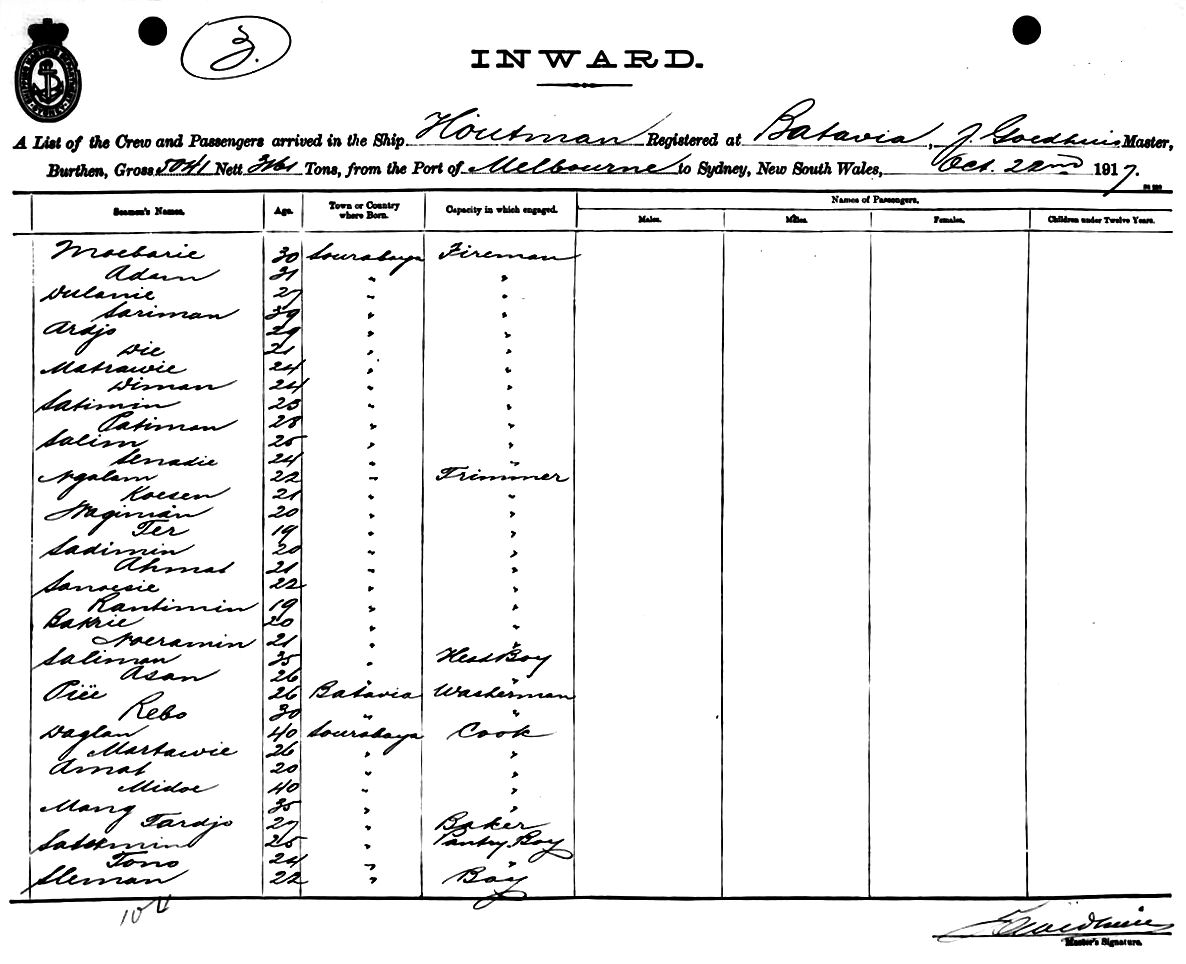 3.
INWARD.
A List of the Crew and Passengers arrived in the Ship Houtman Registered at Batavia, J. Goedhuis Master,
Burthen, Gross 5041 Nett Tons, from the Port of Melbourne to Sydney, New South Wales, Oct. 22nd 1917.
Names of Passengers.
Seamen's Names. Age. Town or Country where Born. Capacity in which engaged. Males. Males. Females. Children under Twelve Years.
Moebarie 30 Sourabaya Fireman
Adam 31 " "
Dulanie 27 " "
Sariman 39 " "
Ardjo 29 " "
Die 21 " "
Matrawie 24 " "
Diman 24 " "
Satimin 23 " "
Patiman 28 " "
Salim 25 " "
Senadie 24 " "
Ngalam 22 " Trimmer
Koesen 21 " "
Wagiman 20 " "
Ter 19 " "
Sadimin 20 " "
Ahmat 21 " "
Sanoesie 22 " "
Rantimin 19 " "
Bakrie 20 " "
Noeramin 21 " "
Saliman 35 " Head Boy
Asan 26 " "
Piëe 26 Batavia Washerman
Rebo 30 " "
Daglan 40 Sourabaya Cook
Martawie 26 " "
Amat 20 " "
Midoe 40 " "
Mang 35 " "
Tardjo 27 " Baker
25 " Pantry Boy
Tono 24 " "
Sleman 22 " Boy
Master's Signature.